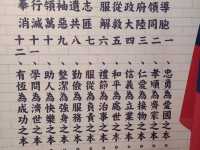 一 忠勇為愛國之本
二 孝順為齊家之本
三 仁愛為接物之本
四 信義為立業之本
五 和平為處世之本
六 禮節為治事之本
七 服從為負責之本
八 勤儉為服務之本
九 整潔為強身之本
十 助人為快樂之本
十一 學問為濟世之本
十二 有恆為成功之本